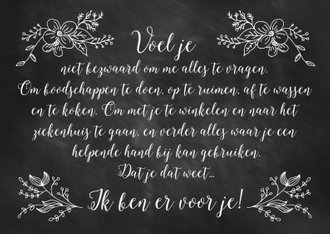 Voel je
niet bezwaard om me alles te vragen.
Om boodschappen te doen, op te ruimen, af te wassen
en te koken. Om met je te winkelen en naar het
ziekenhuis te gaan, en verder alles waar je een
helpende hand bij kan gebruiken.
Dat je dat weet...
Ik ben er voor je!